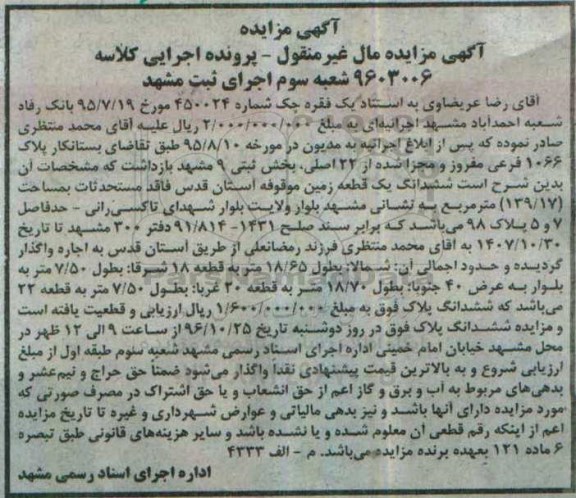 آگهی مزایده
آگهی مزایده مال غیرمنقول - پرونده اجرایی کلاسه
۹۶۰۳۰۰۶ شعبه سوم اجرای ثبت مشهد
آقای رضا عریضاوی به استناد یک فقره چک شماره ۴۵۰۰۲۴ مورخ ۹۵/۷/۱۹ بانک رفاه
شعبه احمدآباد مشهد اجرائیه‌ای به مبلغ ۲/۰۰۰/۰۰۰/۰۰۰ ریال علیه آقای محمد منتظری
صادر نموده که پس از ابلاغ اجرائیه به مدیون در مورخه ۹۵/۸/۱۰ طبق تقاضای بستانکار پلاک
۱۰۶۶ فرعی مفروز و مجزا شده از ۲۲ اصلی، بخش ثبتی ۹ مشهد بازداشت که مشخصات آن
بدین شرح است ششدانگ یک قطعه زمین موقوفه آستان قدس فاقد مستحدثات بمساحت
(۱۳۹/۱۷) مترمربع به نشانی مشهد بلوار ولایت بلوار شهدای تاکسی‌رانی - حدفاصل
۷ و ۵ پلاک ۹۸ می‌باشد که برابر سند صلح ۱۴۳۱- ۹۱/۸۱۴ دفتر ۳۰۰ مشهد تا تاریخ
۱۴۰۷/۱۰/۳۰ به آقای محمد منتظری فرزند رمضانعلی از طریق آستان قدس به اجاره واگذار
گردیده و حدود اجمالی آن: شمالا: بطول ۱۸/۶۵ متر به قطعه ۱۸ شرقا: بطول ۷/۵۰ متر به
بلوار به عرض ۴۰ جنوبا: بطول ۱۸/۷۰ متر به قطعه ۲۰ غربا: بطول ۷/۵۰ متر به قطعه ۲۲
می‌باشد که ششدانگ پلاک فوق به مبلغ ۱/۶۰۰/۰۰۰/۰۰۰ ریال ارزیابی و قطعیت یافته است
و مزایده ششدانگ پلاک فوق در روز دوشنبه تاریخ ۹۶/۱۰/۲۵ از ساعت ۹ الی ۱۲ ظهر در
محل مشهد خیابان امام خمینی اداره اجرای اسناد رسمی مشهد شعبه سوم طبقه اول از مبلغ
ارزیابی شروع و به بالاترین قیمت پیشنهادی نقدا واگذار می‌شود ضمنا حق حراج و نیم‌عشر و
بدهی‌های مربوط به آب و برق و گاز اعم از حق انشعاب و یا حق اشتراک در مصرف صورتی که
مورد مزایده دارای آنها باشد و نیز بدهی مالیاتی و عوارض شهرداری و غیره تا تاریخ مزایده
اعم از اینکه رقم قطعی آن معلوم شده و یا نشده باشد و سایر هزینه‌های قانونی طبق تبصره
۶ ماده ۱۲۱ بعهده برنده مزایده می‌باشد. م - الف ۴۳۳۳
اداره اجرای اسناد رسمی مشهد